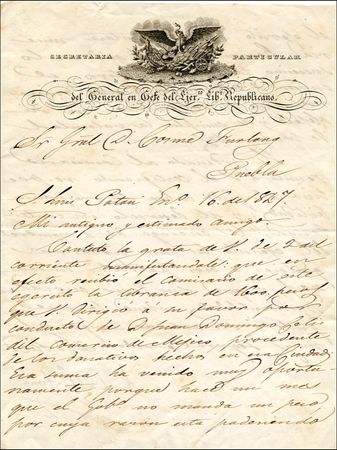 SECRETARIA PARTICULAR
del General en Gefe del Ejer.to Lib.r Republicano.
Sr Gral D. Cosme Furlong
Puebla
S. Luis Potosi En.o 16. de 1847.
Mi antiguo y estimado amigo.
Contesto la grata de V. de 2 del
corriente manifestandole: que en
efecto recibio el Comisario de este
egercito la libranza de 1600. pesos
que V. dirigio a su favor por
conducto de D. Juan Domingo
del comercio de Mejico procedente
de los donativos hechos en esa Ciudad
Esa suma ha venido muy oportu-
namente, porque hace un mes
que el Gob.no no manda un peso
por cuya razon esta padeciendo